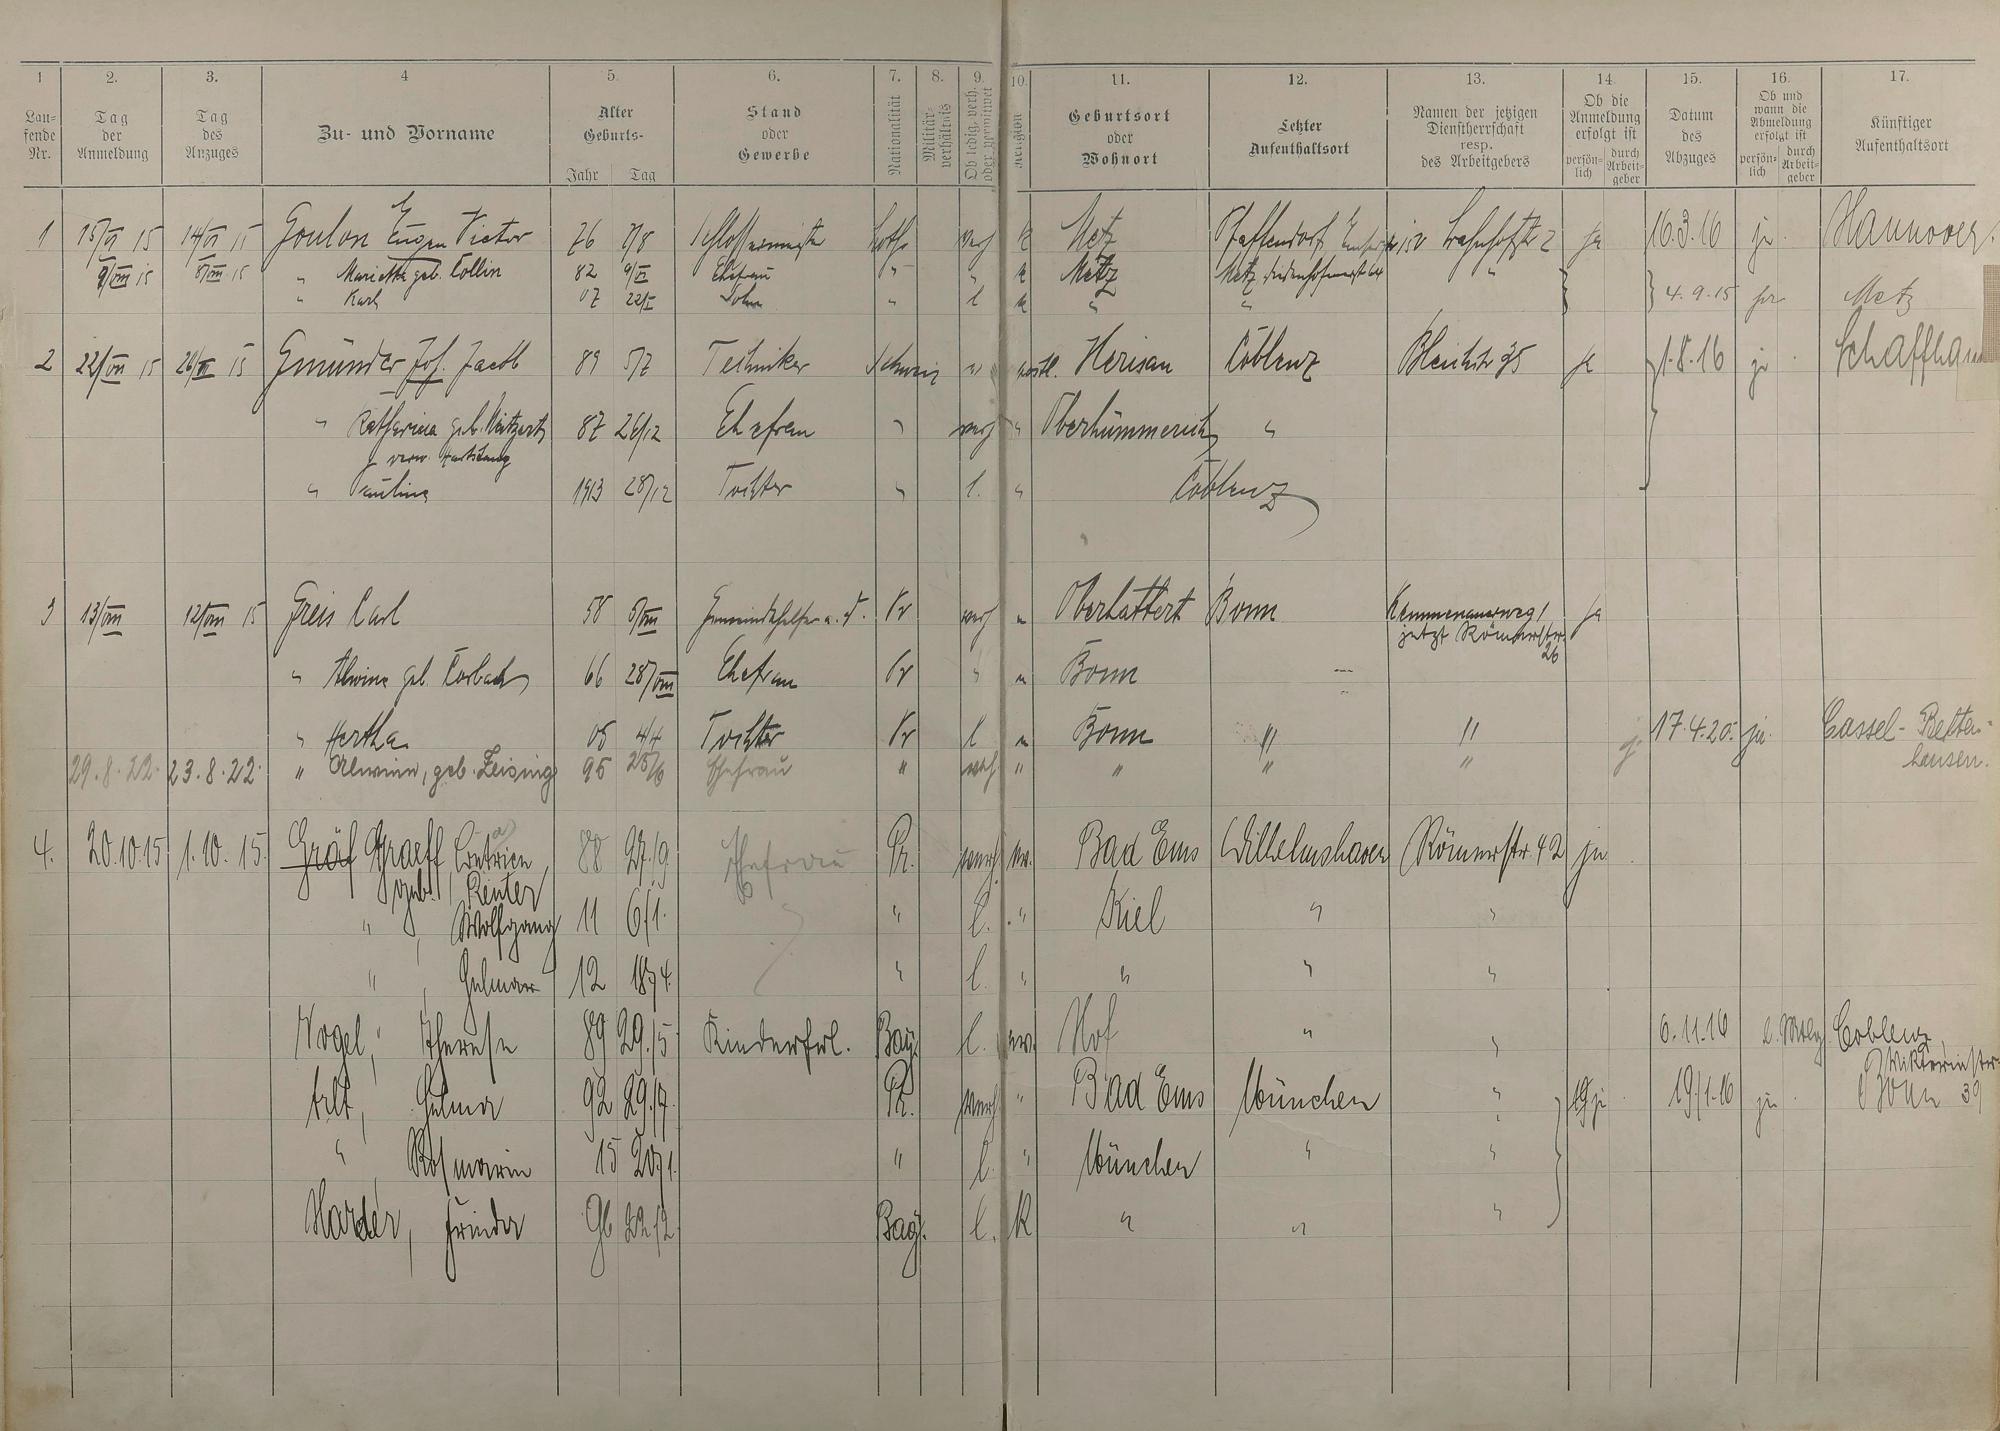 1 2. 3. 4 5. 6. 7. 8. 9. 10. 11. 12. 13. 14. 15. 16. 17.
Lau-
fende
Nr.
Tag
der
Anmeldung
Tag
des
Anzuges
Zu- und Vorname
Alter
Geburts-
Jahr Tag
Stand
oder
Gewerbe
Nationalität
Militär-
verhältnis
Ob ledig, verh.
oder verwitwet
Religion
Geburtsort
oder
Wohnort
Letzter
Aufenthaltsort
Namen der jetzigen
Dienstherrschaft
resp.
des Arbeitgebers
Ob die
Anmeldung
erfolgt ist
persön-
lich
durch
Arbeit-
geber
Datum
des
Abzuges
Ob und
wann die
Abmeldung
erfolgt ist
persön-
lich
durch
Arbeit-
geber
Künftiger
Aufenthaltsort
1 15/VI 15 14/VI 15 Goulon Eugen Victor 76 7/8 Schlossermeister Lothr verh k Metz Pfaffendorf Bahnhofstr 2 ja 16.3.16 ja Hannover.
9/VIII 15 8/VIII 15 " Marietta geb. Collin 82 9/VI Ehefrau " " k Metz Metz "
" Karl 07 22/I Sohn " l k " " 4.9.15 ja Metz
2 22/VII 15 20/VII 15 Gmünder Joh. Jacob 89 5/7 Techniker Schweiz v Herisau Coblenz Bleichstr 35 ja 1.8.16 ja
" Katharina geb. 87 26/12 Ehefrau " verh " Oberhümmerich "
" Paulina 1913 28/12 Tochter " l. " Coblenz
3 13/VIII 12/VIII 15 Greis Carl 58 5/VIII Gemeindehelfer a. D. Pr verh " Oberhattert Bonn Kemmenauerweg 1 ja
jetzt Römerstr
26
" Alwine geb. Corbach 66 28/VIII Ehefrau Pr " " Bonn
" Hertha 05 4/4 Tochter Pr l " Bonn " " 17.4.20. ja. Cassel-Betten-
hausen.
29.8.22. 23.8.22. " Alwine, geb. Leising 95 25/6 Ehefrau " verh " " " "
4. 20.10.15 1.10.15. Gräf Graeff 88 27./9. Ehefrau Pr. verh. ev. Bad Ems Wilhelmshaven Römerstr. 42 ja
geb. Reuter
" , Wolfgang 11 6/1. " l. " Kiel " "
" , 12 18/4. " l. " " " "
Vogel, Therese 89 29./5 Kinderfrl. Bay. l. ev. Hof " " 6.11.16 Coblenz,
Viktoriastr.
Arlt, 92 29./7. Pr. verh. " Bad Ems München " ja 19/1.16 ja Bonn 39
" , Rosmarin 15 20/1. " l. " München " "
Harder, 96 22/2. Bay. l. K " " "